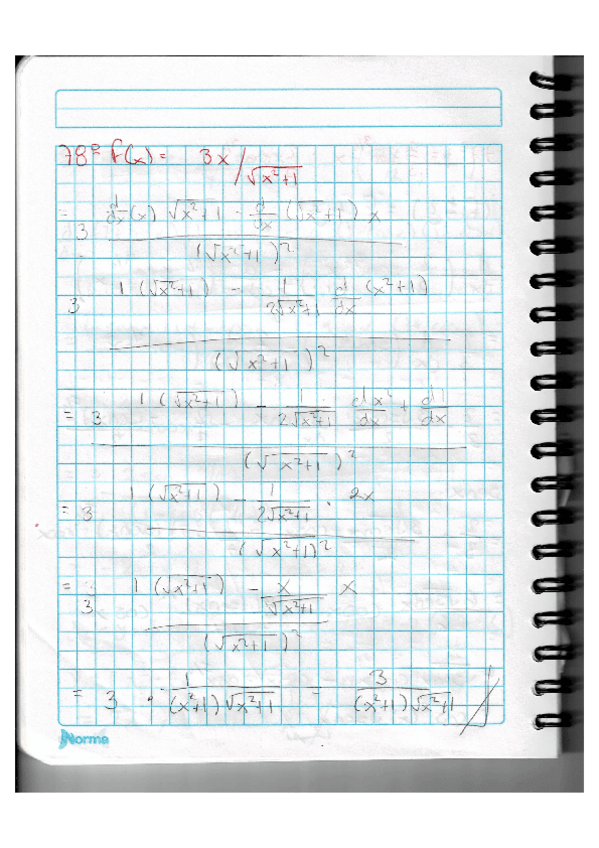 78º f(x) = 3x / √x²+1
= 3 d/dx (x) √x²+1 - d/dx (√x²+1) x / (√x²+1)²
3 1 (√x²+1) - 1/2√x²+1 d/dx (x²+1) / (√x²+1)²
= 3 1 (√x²+1) - 1/2√x²+1 dx²/dx + d1/dx / (√x²+1)²
= 3 1 (√x²+1) - 1/2√x²+1 · 2x / (√x²+1)²
= 3 1 (√x²+1) - x/√x²+1 x / (√x²+1)²
= 3 · 1/(x²+1)√x²+1 - 3/(x²+1)√x²+1
Norma